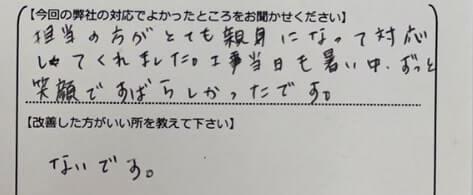 【今回の弊社の対応でよかったところをお聞かせください】
担当の方がとても親身になって対応
してくれました。工事当日も暑い中、ずっと
笑顔ですばらしかったです。
【改善した方がいい所を教えて下さい】
ないです。